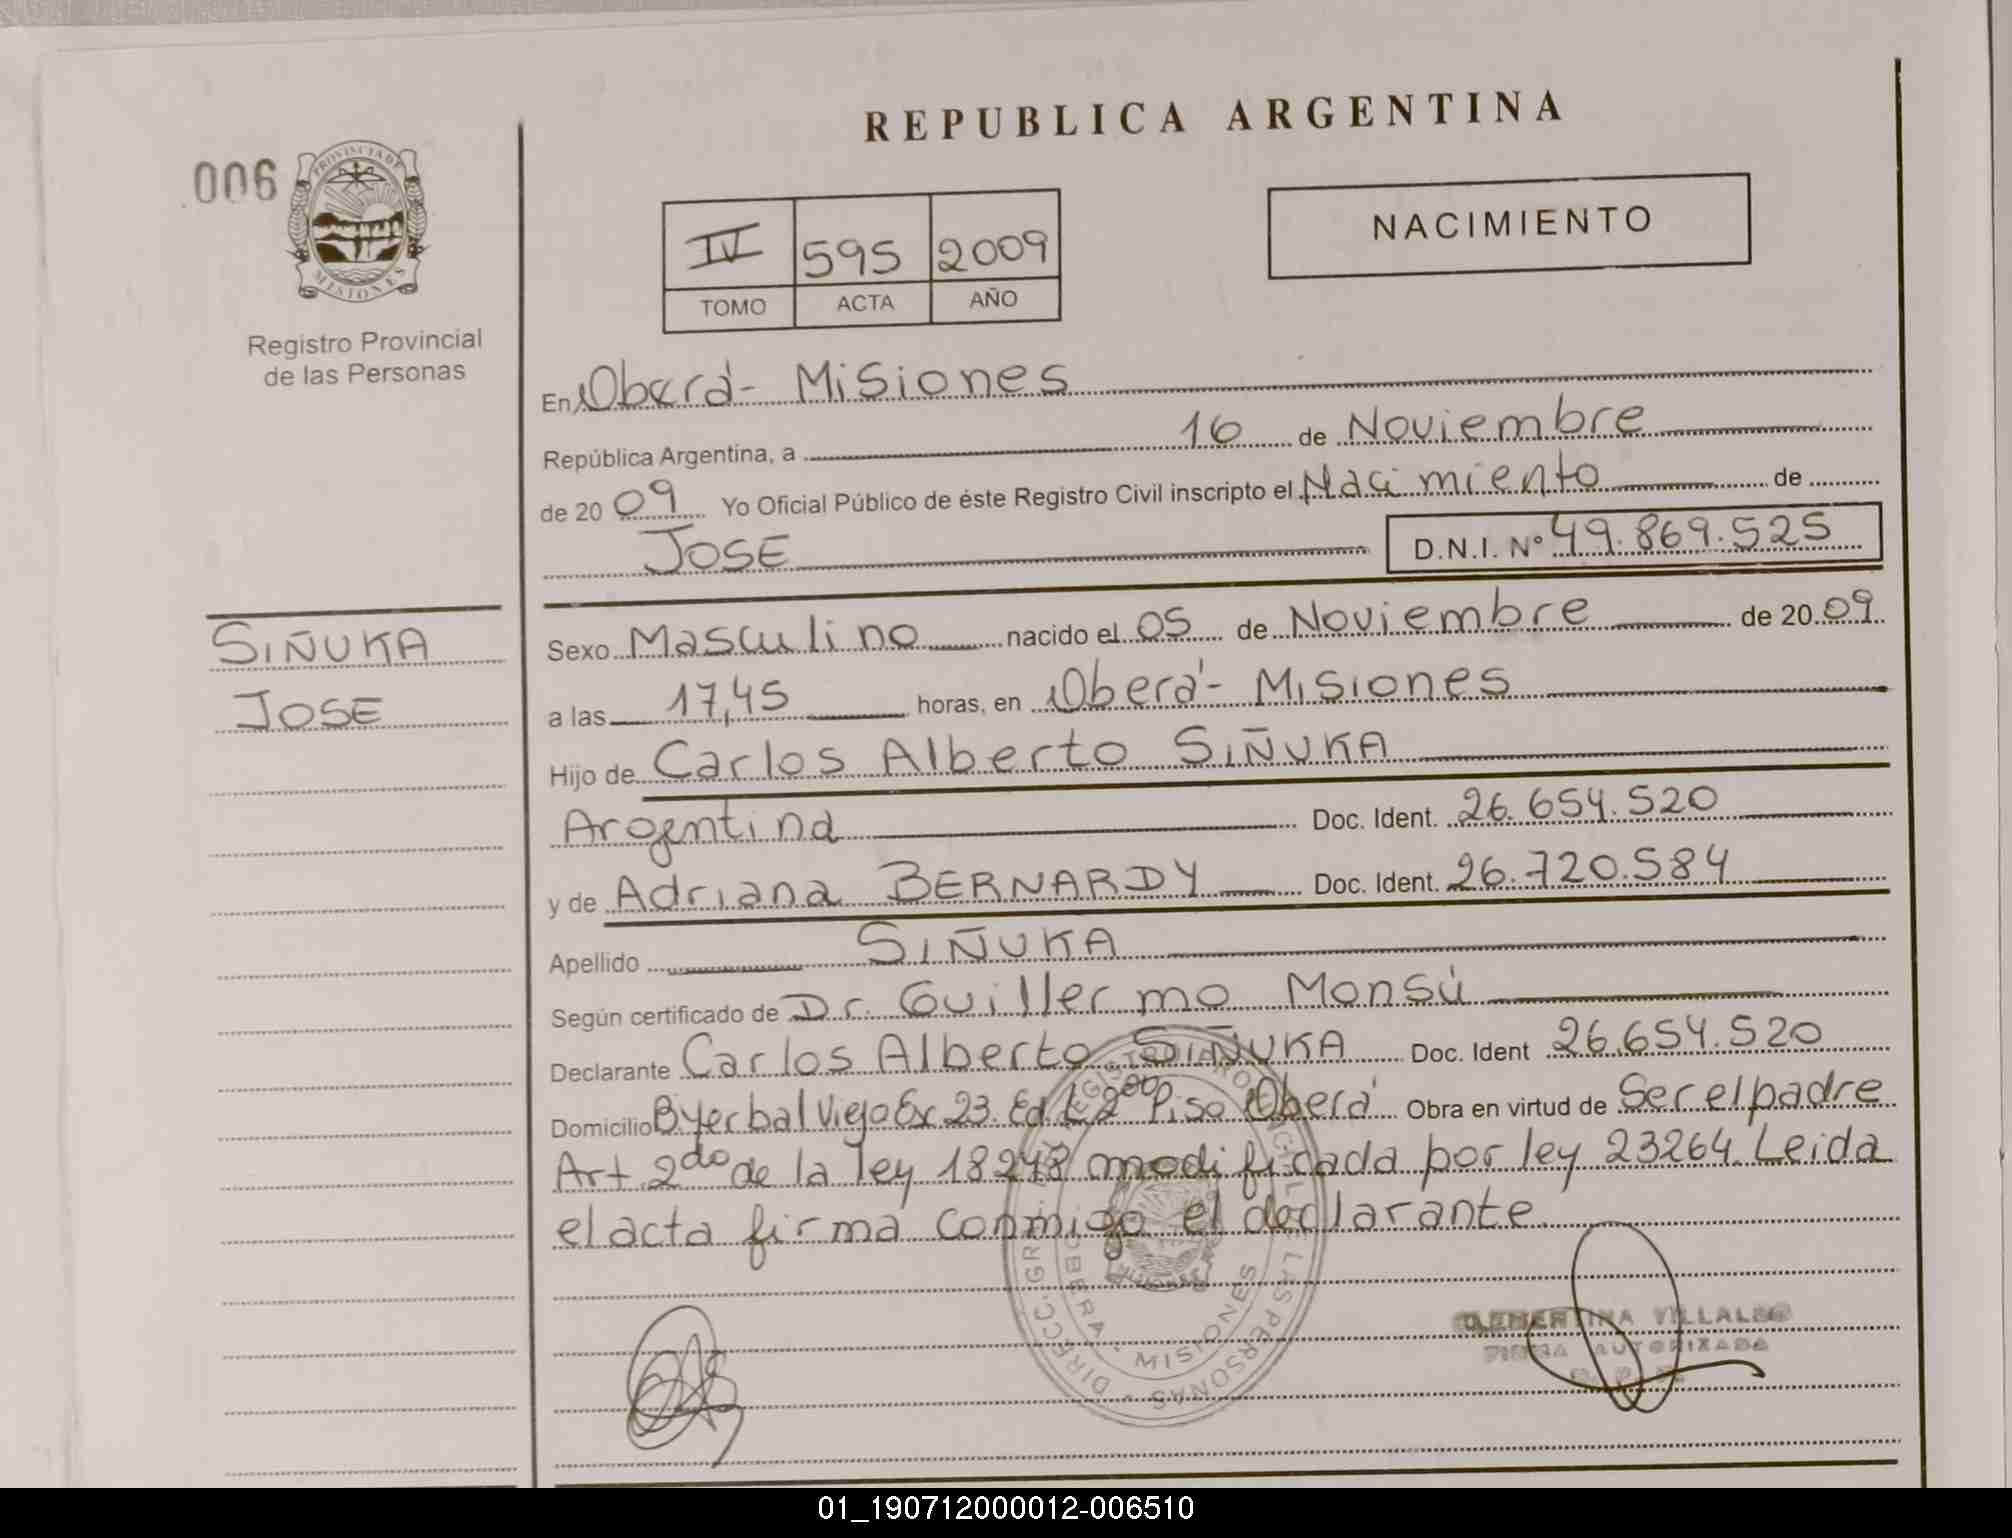 REPUBLICA ARGENTINA
006
PROVINCIA DE
MISIONES
Registro Provincial
de las Personas
NACIMIENTO
IV 595 2009
TOMO ACTA AÑO
En Oberá - Misiones
República Argentina, a 16 de Noviembre
de 20 09 Yo Oficial Público de éste Registro Civil inscripto el Nacimiento de
JOSE D.N.I. Nº 49.869.525
SIÑUKA
JOSE
Sexo Masculino nacido el 05 de Noviembre de 20 09
a las 17,45 horas, en Oberá - Misiones
Hijo de Carlos Alberto SIÑUKA
Argentina Doc. Ident. 26.654.520
y de Adriana BERNARDY Doc. Ident. 26.720.584
Apellido SIÑUKA
Según certificado de Dr. Guillermo Monsú
Declarante Carlos Alberto SIÑUKA Doc. Ident 26.654.520
Domicilio B Yerbal Viejo Ex 23. Ed. 2do Piso Oberá Obra en virtud de Ser el padre
Art. 2do de la ley 18248 modificada por ley 23264. Leida
el acta firma conmigo el declarante
OBERA - MISIONES
CLEMENTINA VILLALBA
FIRMA AUTORIZADA
01_190712000012-006510